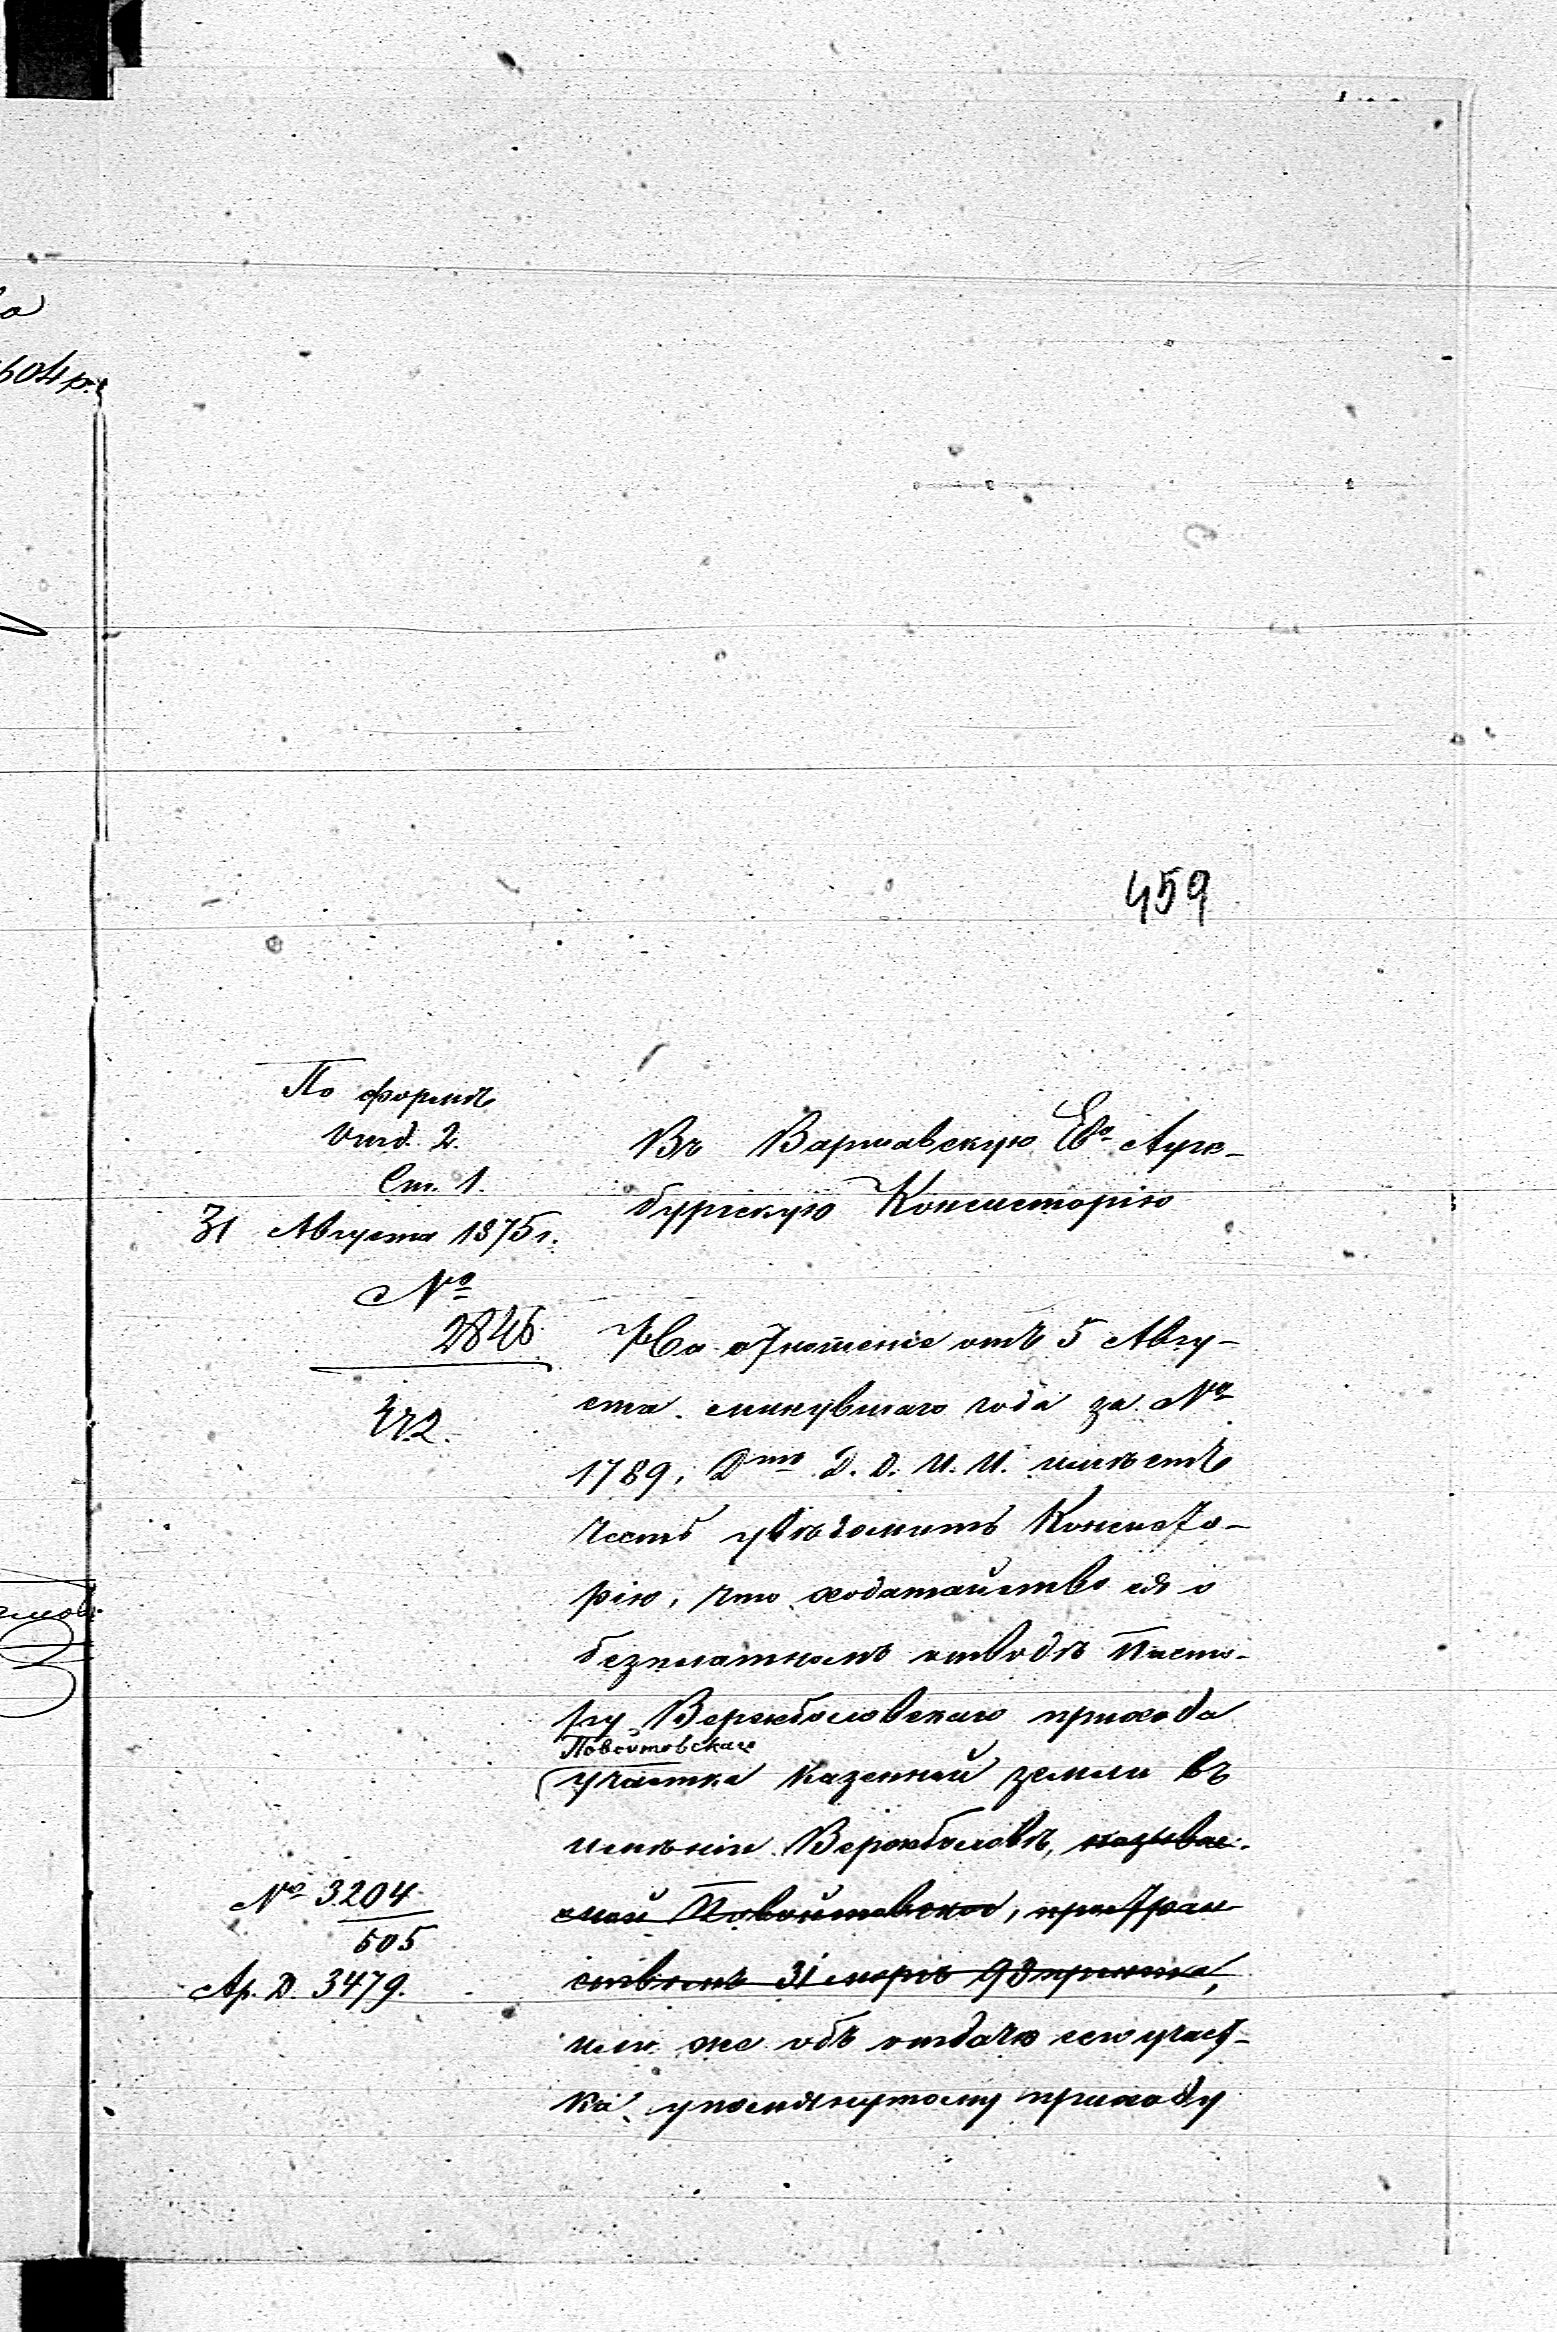 459
По формѣ
Отд. 2.
Ст. 1.
31 Августа 1875 г.
№
2846
472.
Въ Варшавскую Ев⁰ Аугс-
бургскую Консисторію
На отношеніе отъ 5 Авгу-
ста минувшаго года за №
1789, Дтъ Д. Д. И. И. имѣетъ
честь увѣдомить Консисто-
рію, что ходатайство ея о
безплатномъ отводѣ Пасто-
ру Вержболовскаго прихода
Повойтовскаго
участка казенной земли въ
имѣніи Вержболовъ, называе-
мой Повойтовской, простран-
ствомъ 31 моргъ 98 прентовъ,
или же объ отдачѣ сего участ-
ка упомянутому приходу
№ 3204
505
Ар. Д. 3479.
604 р.